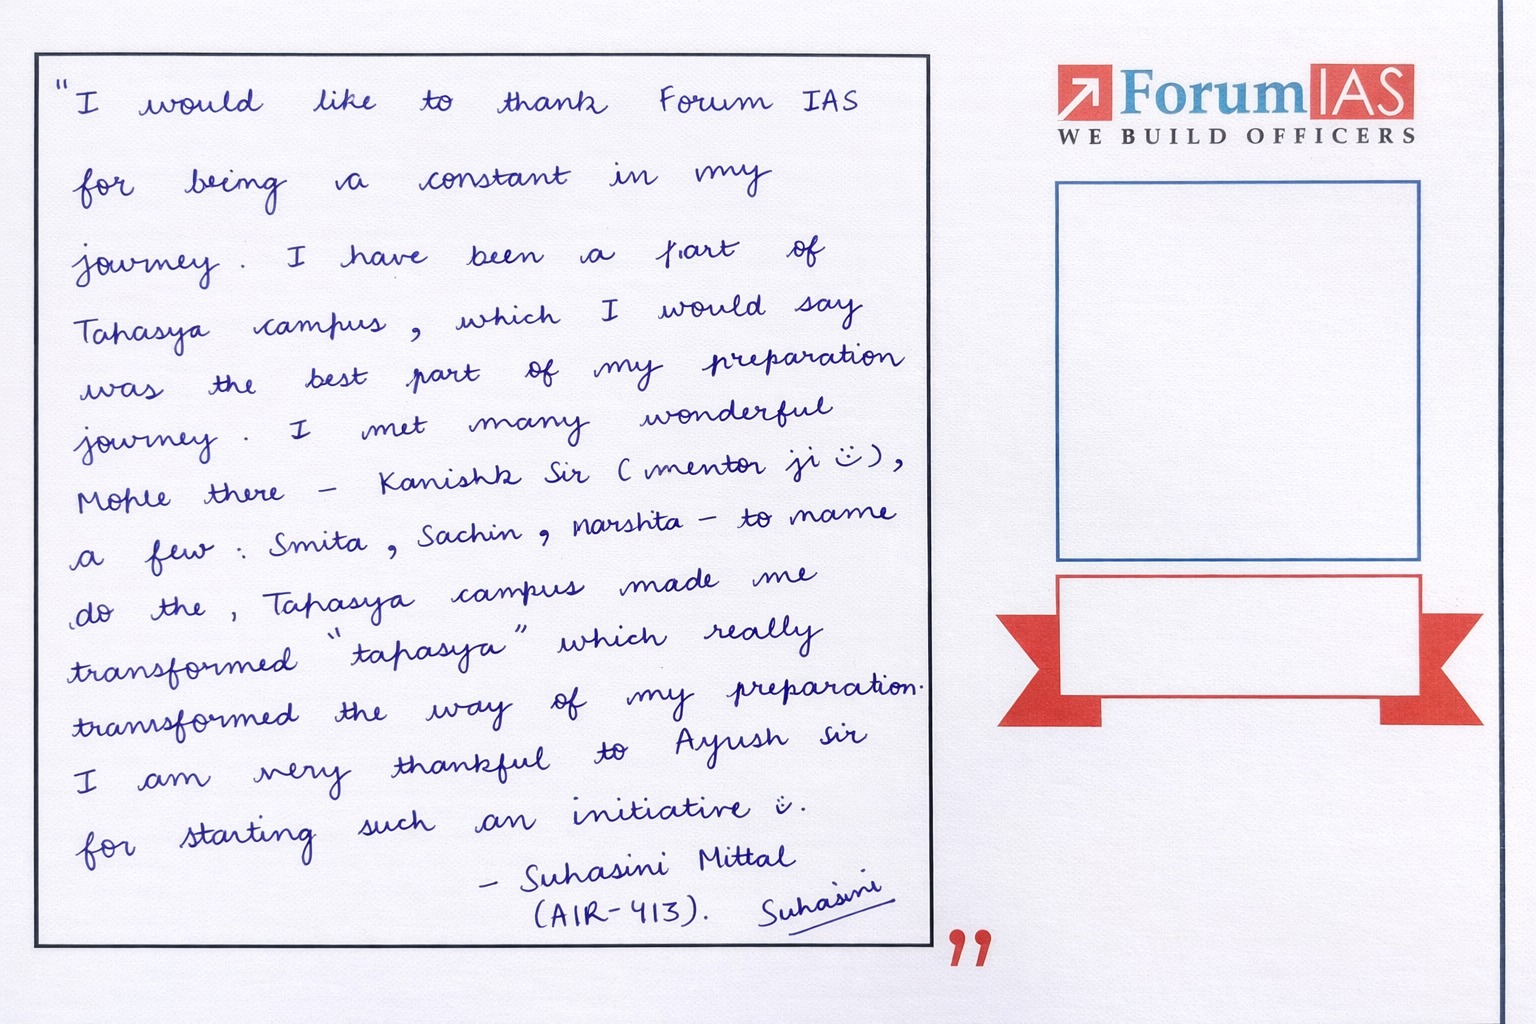 "I would like to thank Forum IAS
for being a constant in my
journey. I have been a part of
Tapasya campus, which I would say
was the best part of my preparation
journey. I met many wonderful
Mople there – Kanishk Sir (mentor ji :)),
a few : Smita, Sachin, Narshta – to name
do the, Tapasya campus made me
transformed "tapasya" which really
transformed the way of my preparation.
I am very thankful to Ayush sir
for starting such an initiative :).
– Suhasini Mittal
(AIR-413). Suhasini
”
ForumIAS
WE BUILD OFFICERS